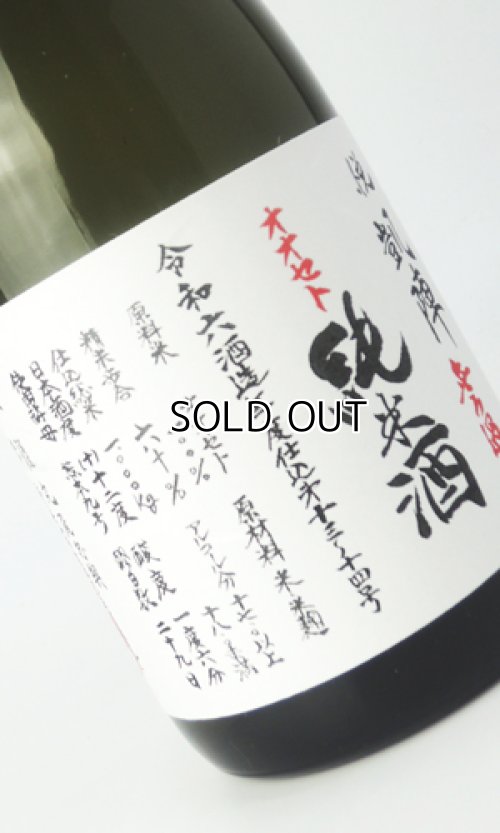 悦凱陣
オオセト
純米酒
令和六酒造年度仕込オ十三、十四号
原料米
オオセト
一〇〇%
精米歩合
六十%
仕込総米
一〇〇〇kg
日本酒度
(+)十二度
熊本九号
原材料 米 米麹
アルコール分 十七以上
十八未満
酸度
一度六分
二十九日
SOLD OUT